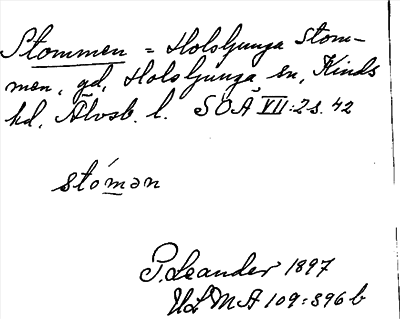 Stommen = Holsljunga Stom-
men, gd, Holsljunga sn, Kinds
hd, Älvsb. l. SOÄ VII:2 s. 42
stómən
P. Leander 1897
ULMA 109:396 b